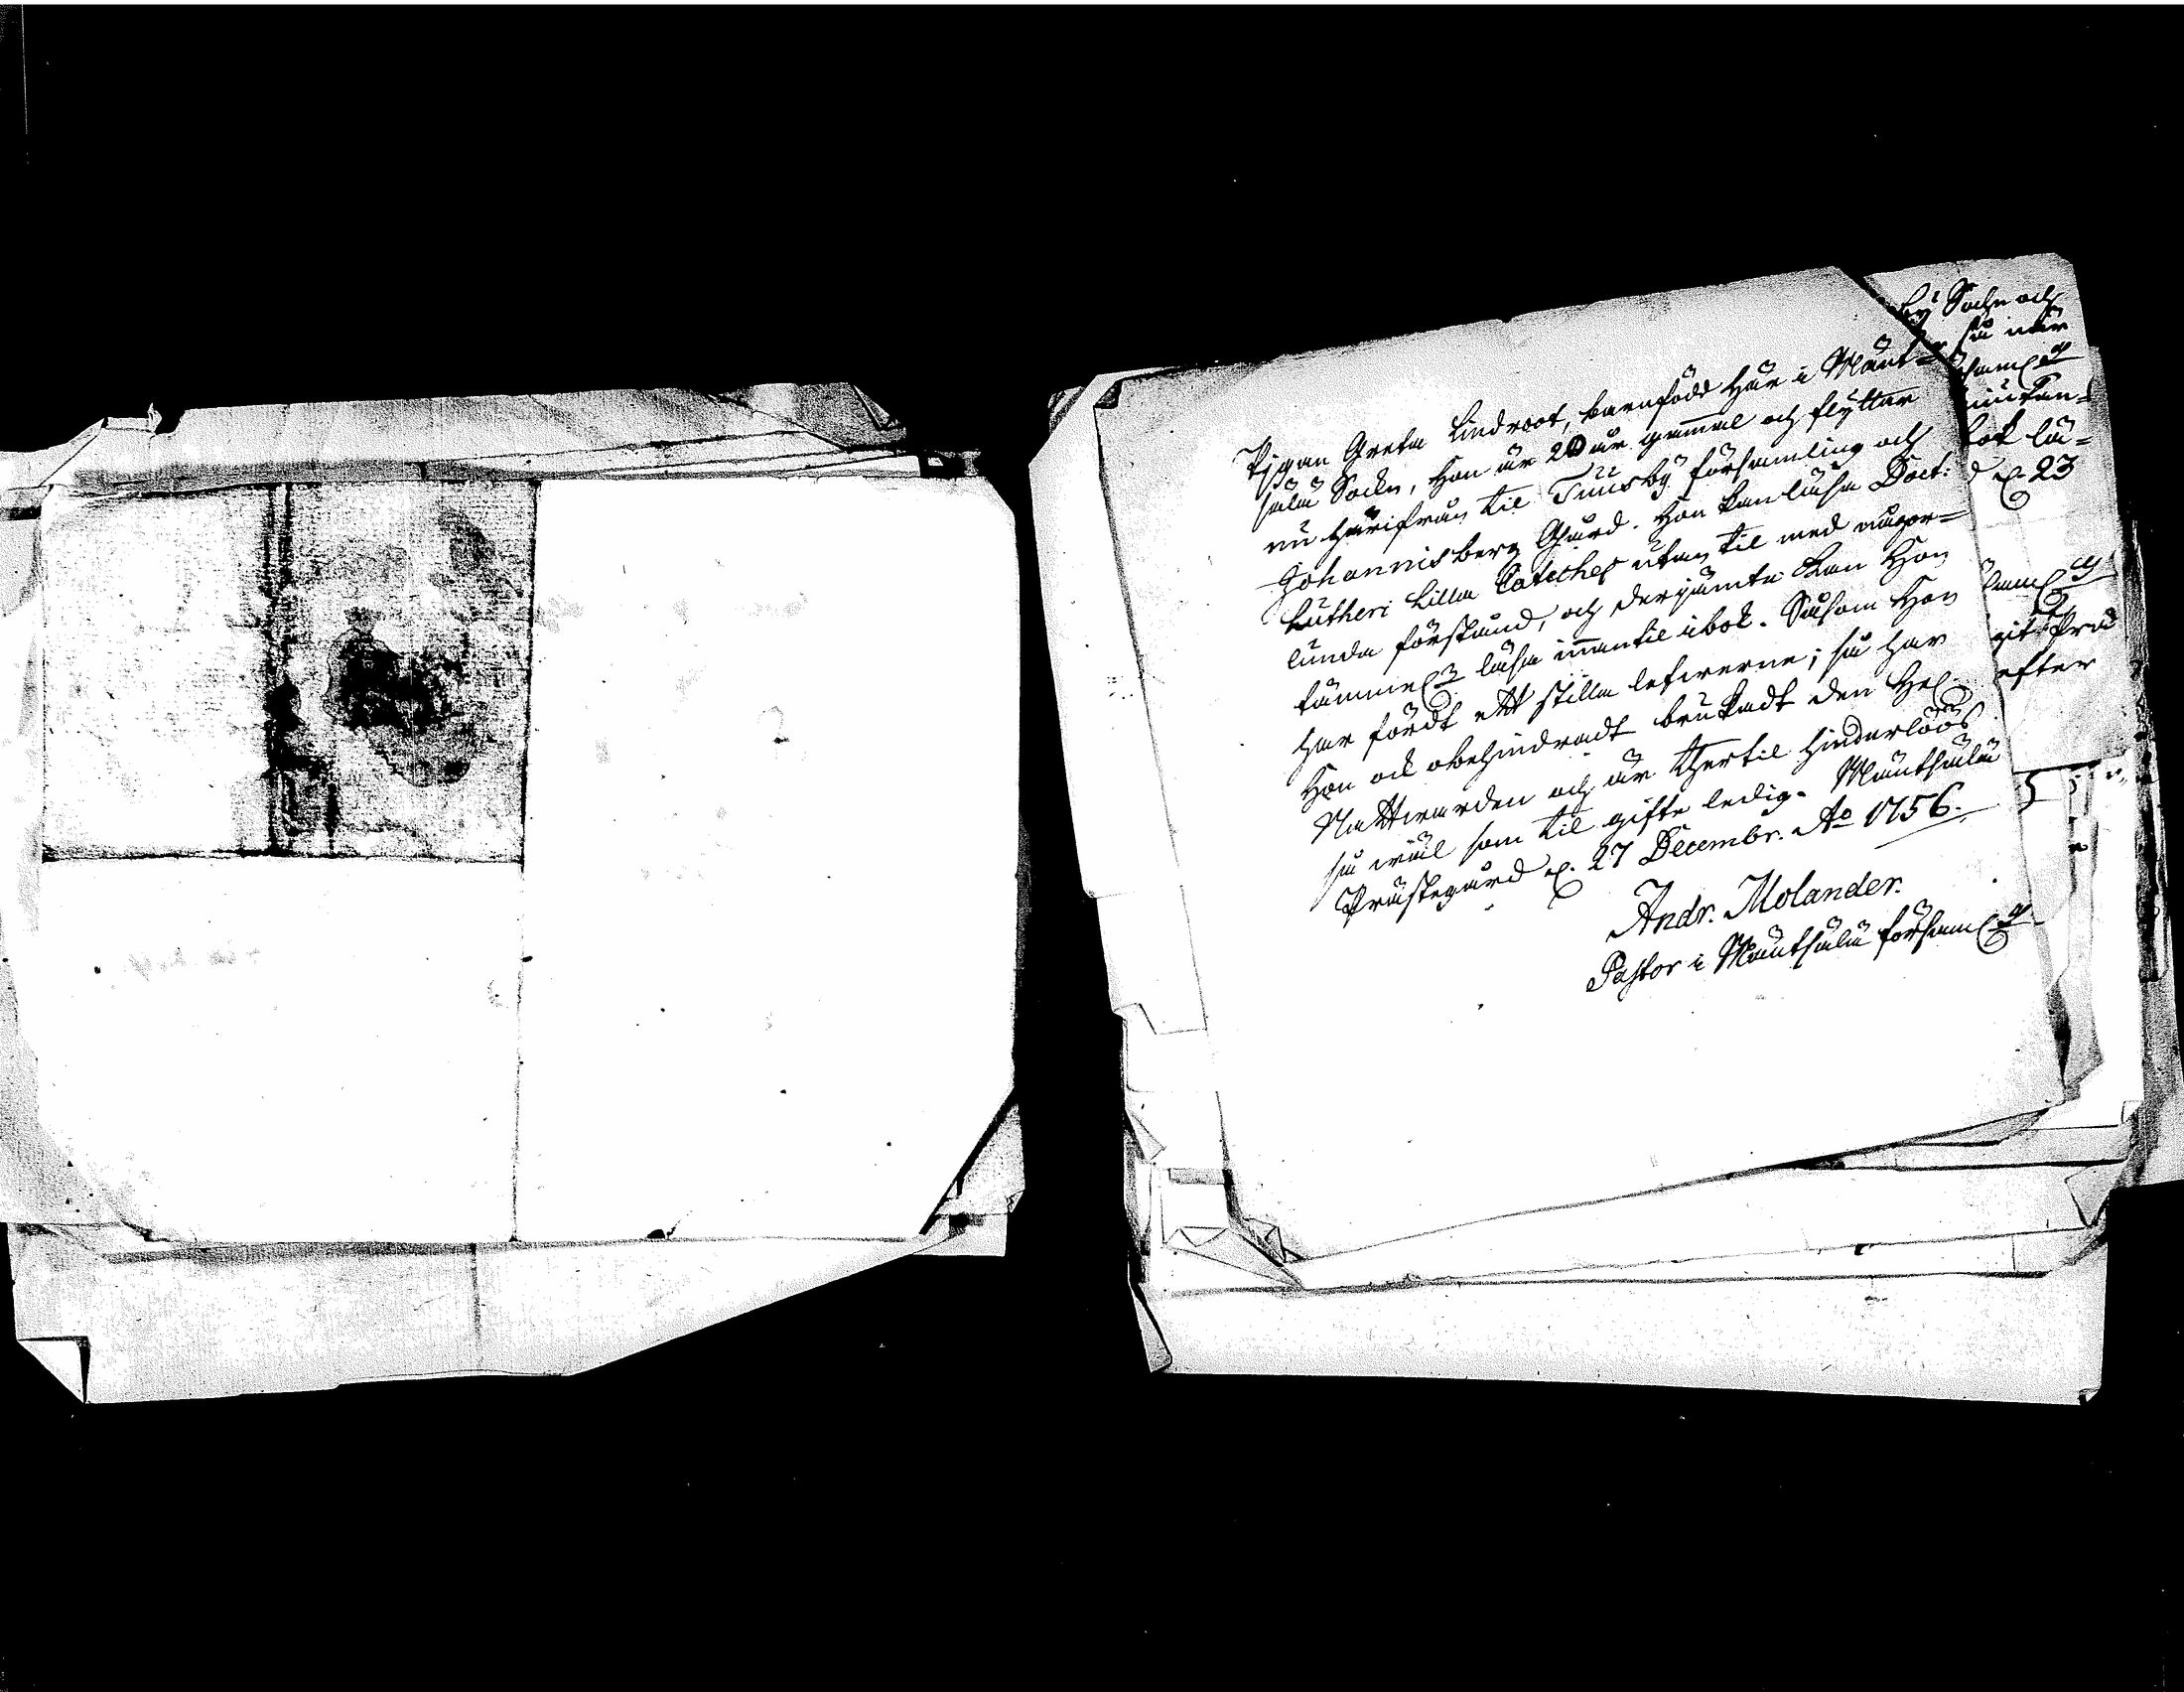 Pigan Greta Lindroot, barnfödd här i Mänt-
sälä Sockn, Hon är 20 år gammal och flyttar
nu härifrån til Tuusby församling och
Johannisberg Gård. Hon kan läsa Doct:
Lutheri Lilla Catches utan til med någor-
lunda förstånd, och derjämte kan Hon
läsa innantil i bok. Såsom Hon
har fördt ett stilla lefwerne; så har
Hon ock obehindradt brukadt den Hel.
Nattwarden och är thertil hinderlöös
så wäl som til gifte ledig. Mäntsälä
Prästegård d. 27 Decembr. Ao 1756.
Andr. Molander.
Pastor i Mäntsälä församl.
by Sockn och
så när
bok lä-
d. 23
efter